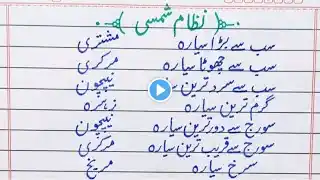 نظام شمسی
سب سے بڑا سیارہ مشتری
سب سے چھوٹا سیارہ مرکری
سب سے سرد ترین نیپچون
گرم ترین سیارہ زہرہ
سورج سے دور ترین سیارہ نیپچون
سورج سے قریب ترین سیارہ مرکری
سرخ سیارہ مریخ